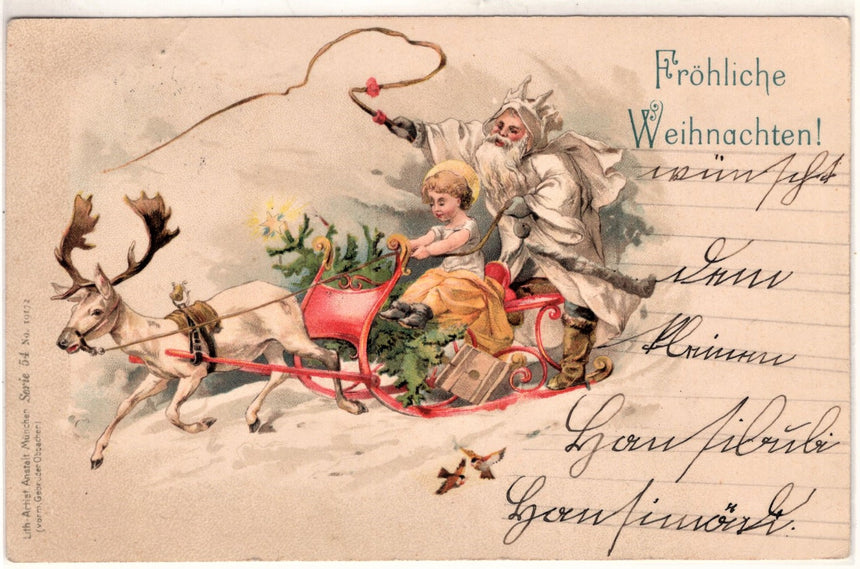 Fröhliche
Weihnachten!
wünscht
dem
kleinen
Hansibubi
Lith.-Artist. Anstalt München Serie 54 No. 10172
(vorm. Gebrüder Obpacher)